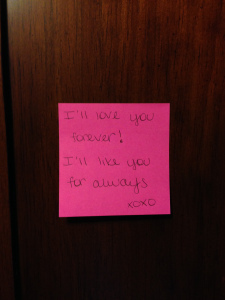 I'll love you
forever!
I'll like you
for always
xoxo